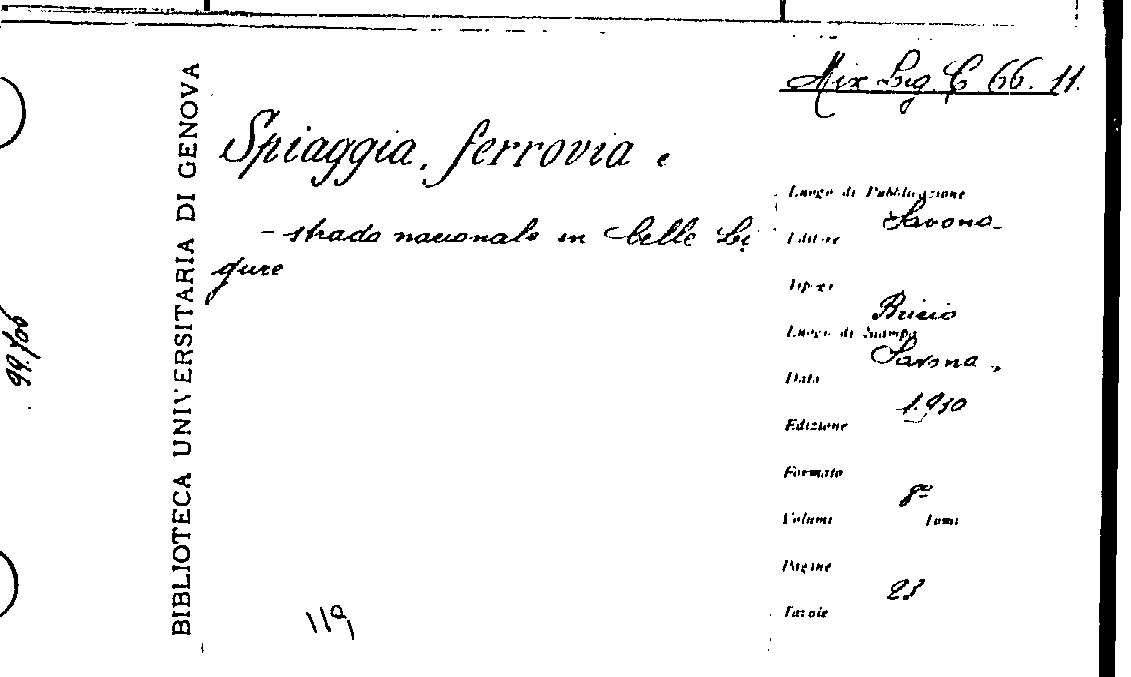 Mix Lig. C 66. 11.
BIBLIOTECA UNIVERSITARIA DI GENOVA
Spiaggia, ferrovia e
- strada nazionale in Celle Li
gure
Luogo di Pubblicazione
Savona
Editore
Tipogr
Luogo di Stampa
Savona,
Data
1.910
Edizione
Formato
8º
Volumi Tomi
Pagine
23
Tavole
119